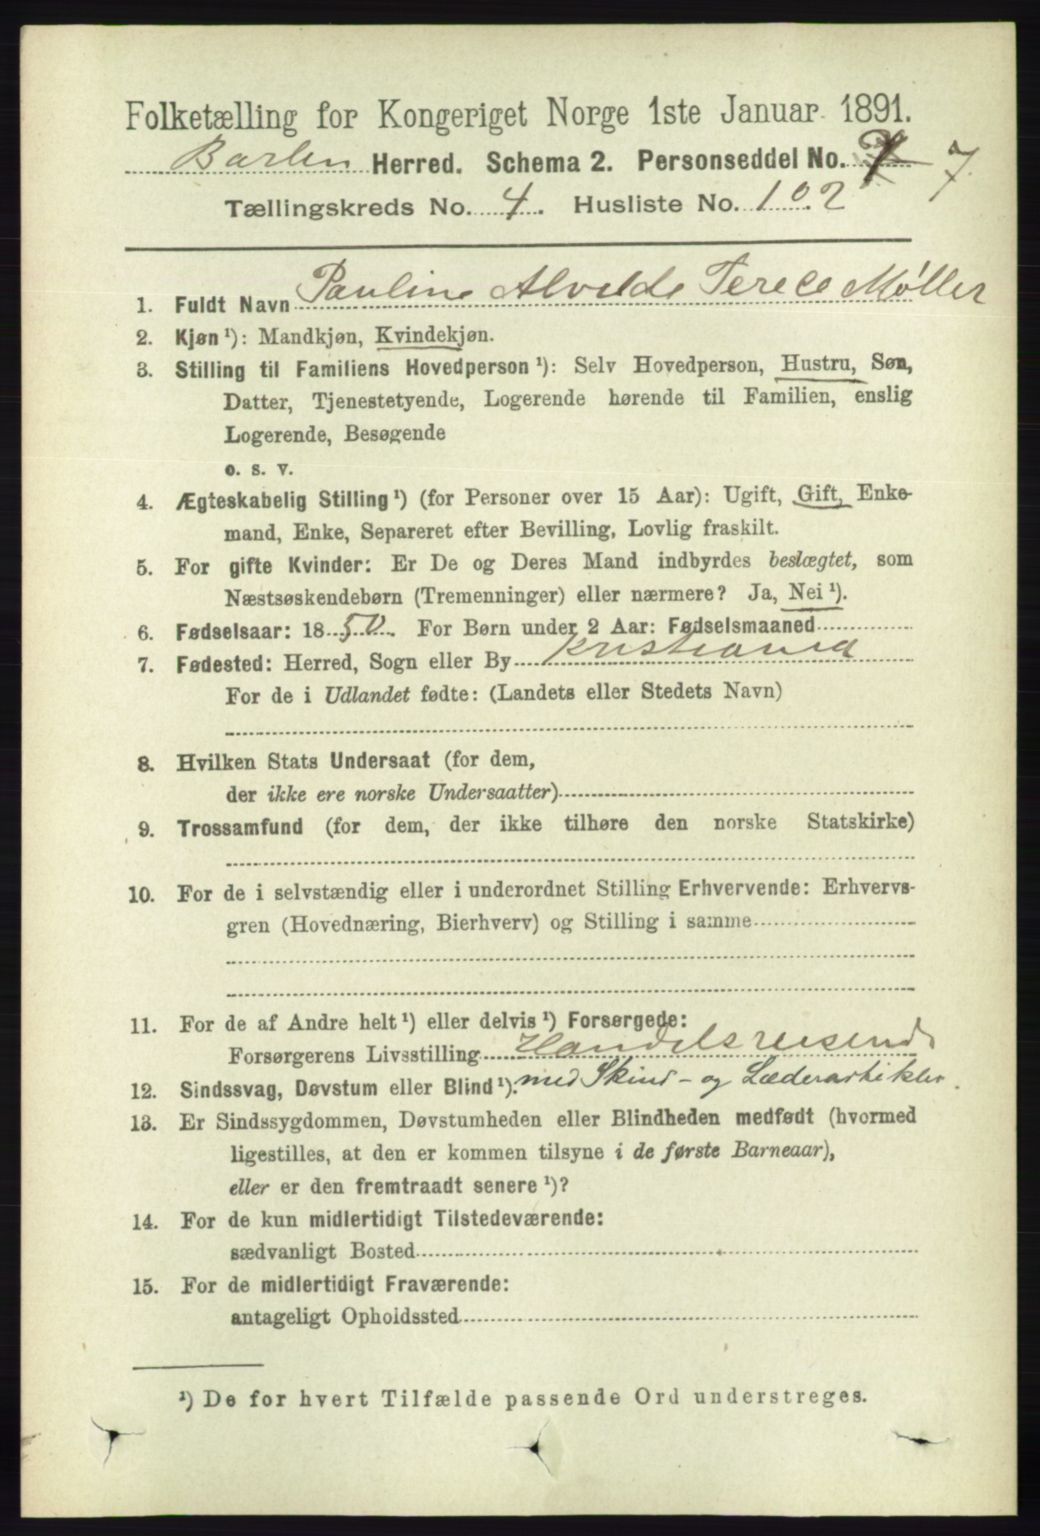 Folketælling for Kongeriget Norge 1ste Januar 1891.
Herred. Schema 2. Personseddel No. 7
Tællingskreds No. 4. Husliste No. 102
1. Fuldt Navn Pauline Alvilde Terece Møller
2. Kjøn ¹): Mandkjøn, Kvindekjøn.
3. Stilling til Familiens Hovedperson ¹): Selv Hovedperson, Hustru, Søn,
Datter, Tjenestetyende, Logerende hørende til Familien, enslig
Logerende, Besøgende
o. s. v.
4. Ægteskabelig Stilling ¹) (for Personer over 15 Aar): Ugift, Gift, Enke-
mand, Enke, Separeret efter Bevilling, Lovlig fraskilt.
5. For gifte Kvinder: Er De og Deres Mand indbyrdes beslægtet, som
Næstsøskendebørn (Tremenninger) eller nærmere? Ja, Nei ¹).
6. Fødselsaar: 1850. For Børn under 2 Aar: Fødselsmaaned
7. Fødested: Herred, Sogn eller By Kristiania
For de i Udlandet fødte: (Landets eller Stedets Navn)
8. Hvilken Stats Undersaat (for dem,
der ikke ere norske Undersaatter)
9. Trossamfund (for dem, der ikke tilhøre den norske Statskirke)
10. For de i selvstændig eller i underordnet Stilling Erhvervende: Erhvervs-
gren (Hovednæring, Bierhverv) og Stilling i samme
11. For de af Andre helt ¹) eller delvis ¹) Forsørgede:
Forsørgerens Livsstilling Handelsreisende
12. Sindssvag, Døvstum eller Blind ¹): med Skind- og Læderartikler.
13. Er Sindssygdommen, Døvstumheden eller Blindheden medfødt (hvormed
ligestilles, at den er kommen tilsyne i de første Barneaar),
eller er den fremtraadt senere ¹)?
14. For de kun midlertidigt Tilstedeværende:
sædvanligt Bosted
15. For de midlertidigt Fraværende:
antageligt Opholdssted
¹) De for hvert Tilfælde passende Ord understreges.